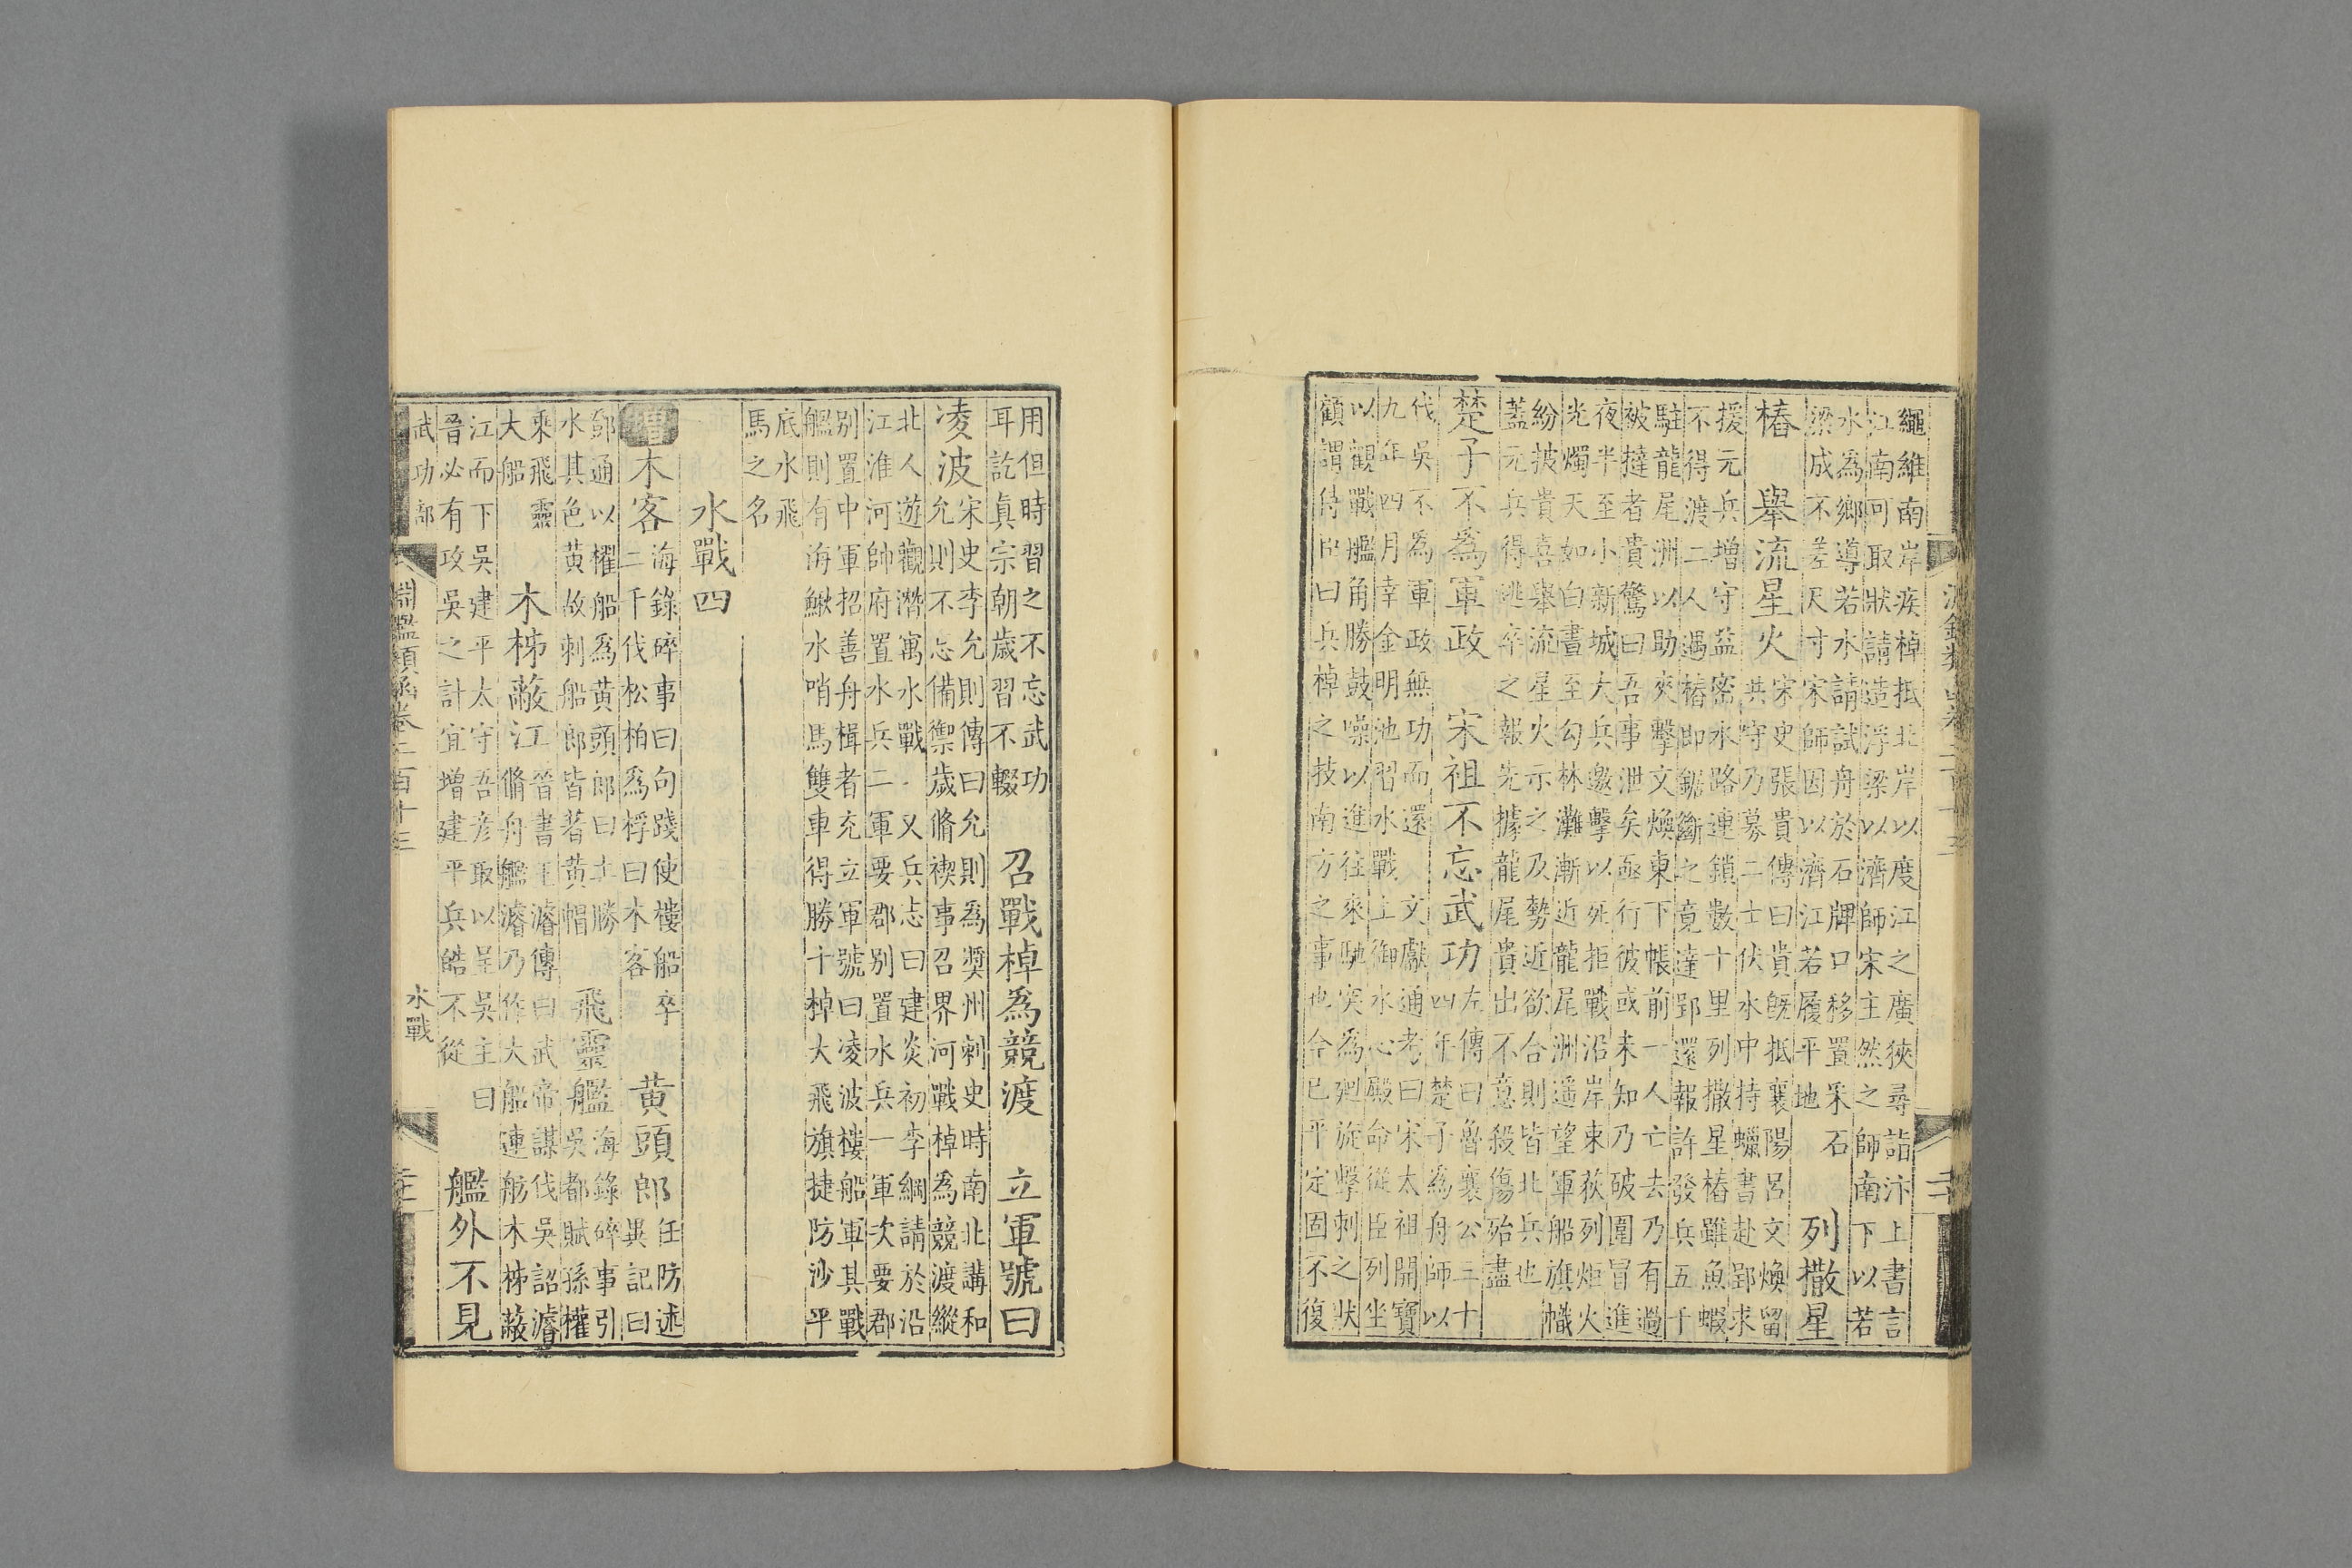 繩維南岸疾棹抵北岸以度江之廣狹尋詣汴上書言
江南可取狀請造浮梁以濟師宋主然之師南下以若
水為鄉導若水請試舟於石牌口移置采石
梁成不差尺寸宋師因以濟江若履平地
列撒星
樁
舉流星火
宋史張貴傳曰貴既抵襄陽呂文煥留
共守乃募二士伏水中持蠟書赴郢求
援元兵增守益密水路連鎖數十里列撒星樁雖魚蝦
不得渡二人遇樁即鋸斷之竟達郢還報許發兵五千
駐龍尾洲以助夾擊文煥東下帳前一人亡去乃有過
被撻者貴驚曰吾事泄矣亟行彼或未知乃破圍冒進
夜半至小新城大兵邀擊以死拒戰沿岸東荻列炬火
光燭天如白晝至勾林灘漸近龍尾洲遥望軍船旗幟
紛披貴喜舉流星火示之及勢近欲合則皆北兵也
蓋元兵得逃卒之報先據龍尾貴出不意殺傷殆盡
楚子不為軍政
宋祖不忘武功
左傳曰魯襄公二十
四年楚子為舟師以
伐吳不為軍政無功而還
文獻通考曰宋太祖開寶
九年四月幸金明池習水戰上御水心殿命從臣列坐
以觀戰艦角勝鼓噪以進往來馳突為迴旋擊刺之狀
顧謂侍臣曰兵棹之技南方之事也今已平定固不復
用但時習之不忘武功
耳訖真宗朝歲習不輟
召戰棹為競渡
立軍號曰
凌波
宋史李允則傳曰允則為獎州刺史時南北講和
允則不忘備禦歲脩禊事召界河戰棹為競渡縱
北人遊觀潛寓水戰
又兵志曰建炎初李綱請於沿
江淮河帥府置水兵二軍要郡別置水兵一軍次要郡
別置中軍招善舟楫者充立軍號曰凌波樓船軍其戰
艦則有海鰍水哨馬雙車得勝十棹大飛旗捷防沙平
底水飛
馬之名
水戰四
增
木客
海錄碎事曰句踐使樓船卒
二千伐松柏為桴曰木客
黃頭郎
任防述
異記曰
鄧通以櫂船為黃頭郎曰土勝
水其色黃故刺船郎皆著黃帽
飛靈艦
海錄碎事引
吳都賦孫權
乘飛靈
大船
木柹蔽江
晉書王濬傳曰武帝謀伐吳詔濬
脩舟艦濬乃作大船連舫木柹蔽
江而下吳建平太守吾彥取以呈吳主曰
晉必有攻吳之計宜增建平兵皓不從
艦外不見
武功部
淵鑑類函卷二百十三
水戰